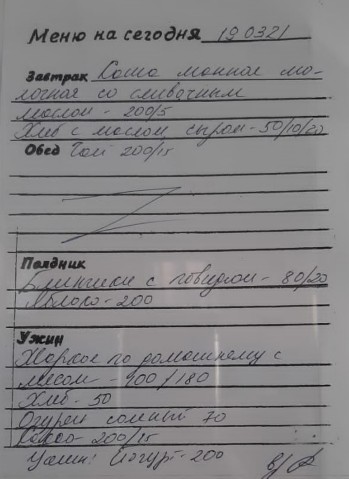 Меню на сегодня 190321
Завтрак Каша манная мо-
лочная со сливочным
маслом - 200/5
Хлеб с маслом сыром - 50/10/20
Обед Чай 200/15
Полдник
Блинчики с повидлом - 80/20
Яблоко - 200
Ужин
Жаркое по домашнему с
мясом - 400/180
Хлеб - 50
Огурец соленый 70
Какао - 200/15
Ужин: Йогурт - 200